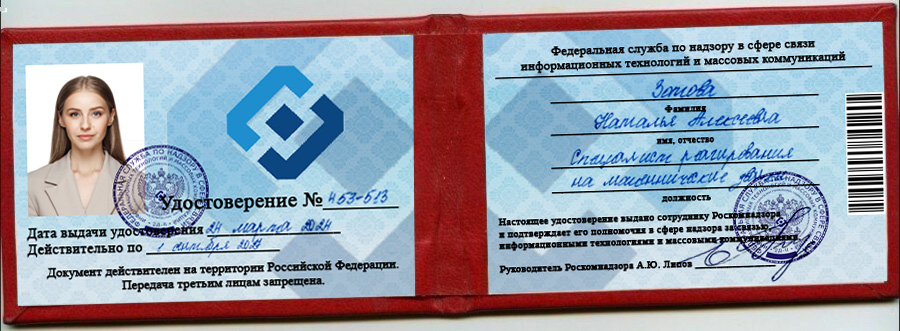 Удостоверение № 453-513
Дата выдачи удостоверения 24 марта 2024
Действительно по 1 2024
Документ действителен на территории Российской Федерации.
Передача третьим лицам запрещена.
Федеральная служба по надзору в сфере связи
информационных технологий и массовых коммуникаций
Зотова
Фамилия
Наталья Алексеевна
имя, отчество
Специалист реагирования
на мошеннические
должность
Настоящее удостоверение выдано сотруднику Роскомнадзора
и подтверждает его полномочия в сфере надзора за связью,
информационными технологиями и массовыми коммуникациями.
Руководитель Роскомнадзора А.Ю. Липов